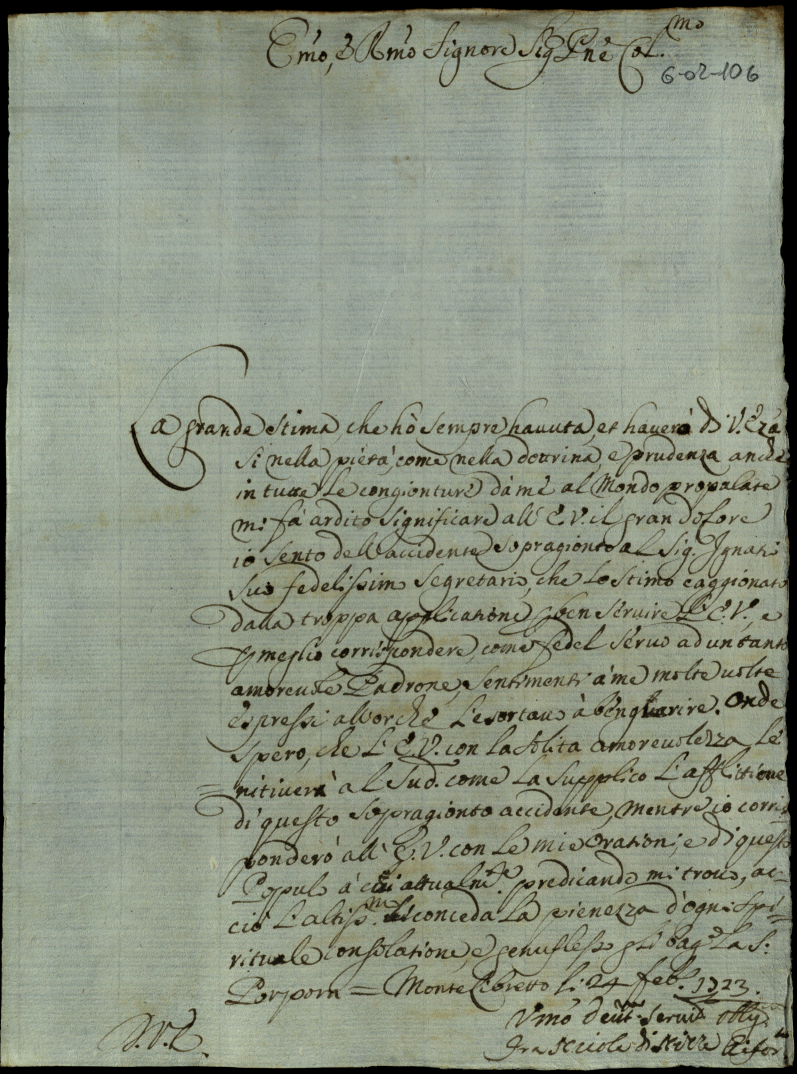 Emo, e Rmo Signore Sig. Pne Col.mo
6-02-106
La grande stima, che hò sempre hauuta, et hauerò di V. Eza
si nella pietà, come nella dottrina, e prudenza anche
in tutte le congionture dà me al Mondo propalate
mi fà ardito significare all' E.V. il gran dolore
io sento dell'accidente sopragionto al Sig. Ignati
suo fedelissimo segretario, che lo stimo caggionato
dalla troppa applicatione p ben seruire l'E.V., e
p meglio corrispondere, come fedel seruo ad un tanto
amoreuole Padrone, sentimenti à me molte uolte
espressi allorche l'esortauo à ben guarire. Onde
spero, che l'E.V. con la solita amoreuolezza le
nitiuerà al Sud. come la supplico l'afflittione
di questo sopragionto accidente, mentre io corris
ponderò all' E.V. con le mie orationi, e di questo
Popolo à cui attualmte predicando mi trouo, ac=
ciò l'altissmo li conceda la pienezza d'ogni spi=
rituale consolatione, e genuflesso gli bagio la S.
Porpora = Monte Libretto li 24 feb. 1723.
D.V.E.
Vmo deut. seruit. obbg.
Fra